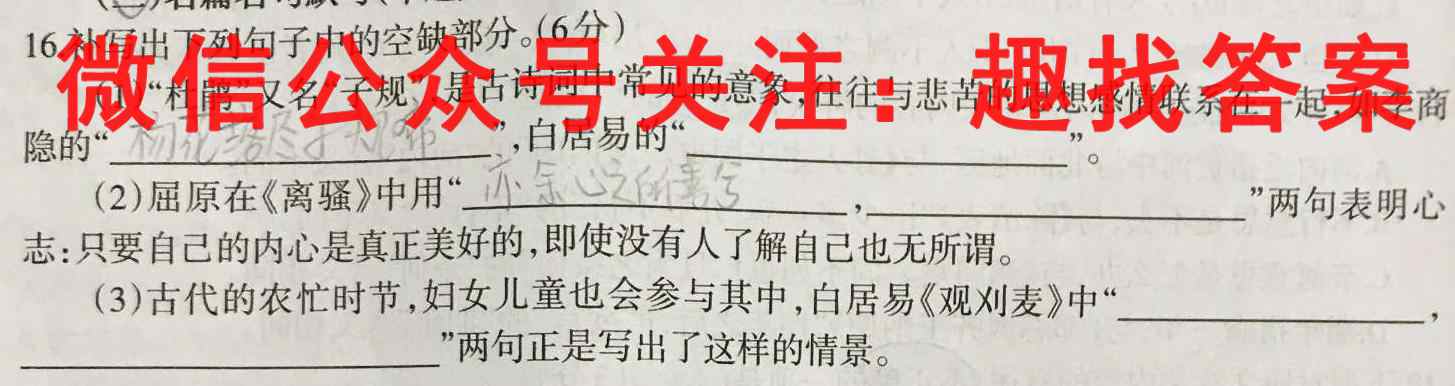 16.补写出下列句子中的空缺部分。(6分)
微信公众号关注：趣找答案
(1)“杜鹃”又名“子规”,是古诗词中常见的意象,往往与悲苦的思想感情联系在一起,如李商
隐的“杨花落尽子规啼”,白居易的“ ”。
(2)屈原在《离骚》中用“亦余心之所善兮 , ”两句表明心
志:只要自己的内心是真正美好的,即使没有人了解自己也无所谓。
(3)古代的农忙时节,妇女儿童也会参与其中,白居易《观刈麦》中“ ,
”两句正是写出了这样的情景。